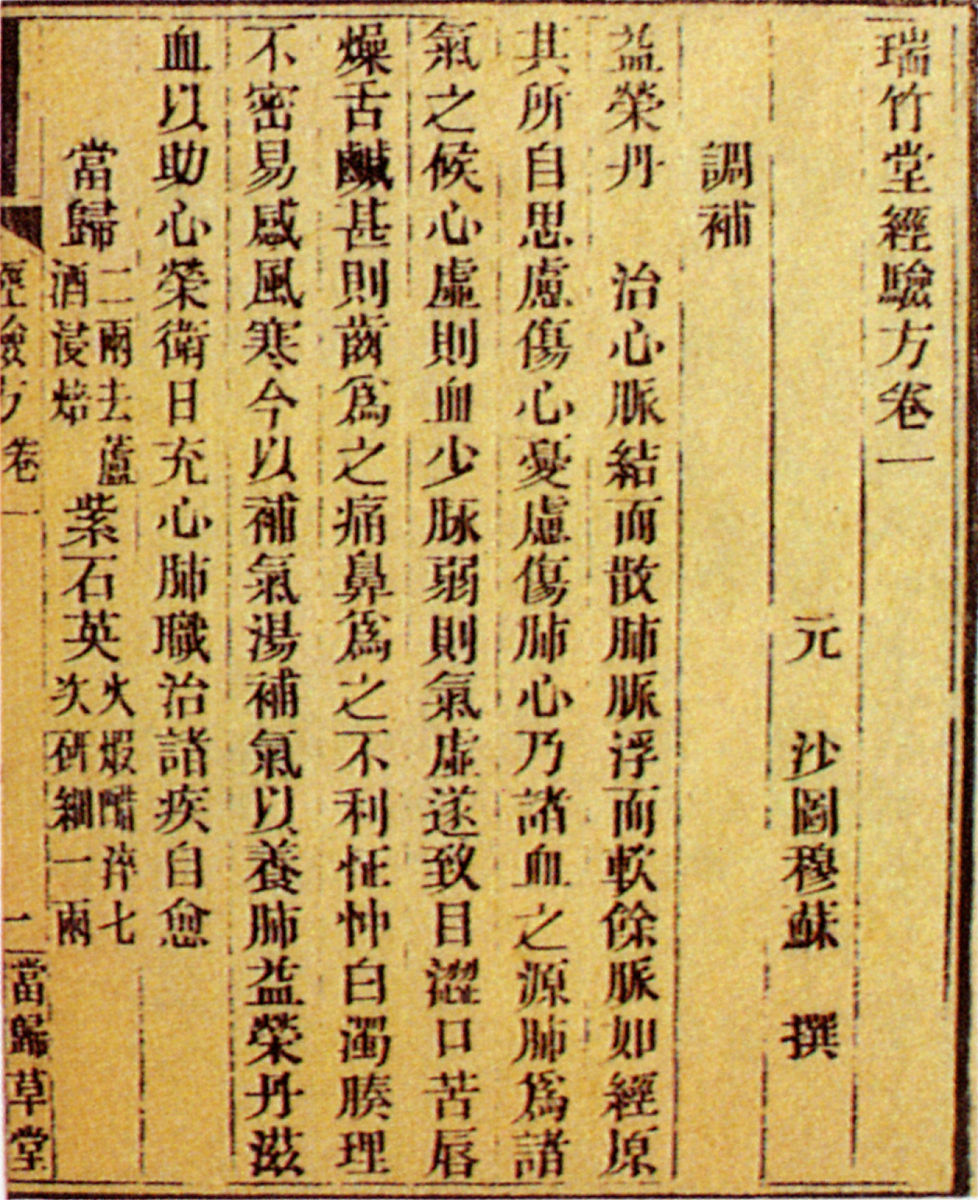 瑞竹堂經驗方卷一
元 沙圖穆蘇 撰
調補
益榮丹 治心脈結而散肺脈浮而軟餘脈如經原
其所自思慮傷心憂慮傷肺心乃諸血之源肺爲諸
氣之候心虛則血少脉弱則氣虛遂致目澀口苦唇
燥舌鹹甚則齒爲之痛鼻爲之不利怔忡白濁腠理
不密易感風寒今以補氣湯補氣以養肺益榮丹滋
血以助心榮衛日充心肺職治諸疾自愈
當歸 二兩去蘆酒浸焙 紫石英 火煆醋淬七次研細一兩
經驗方卷一 二 當歸草堂